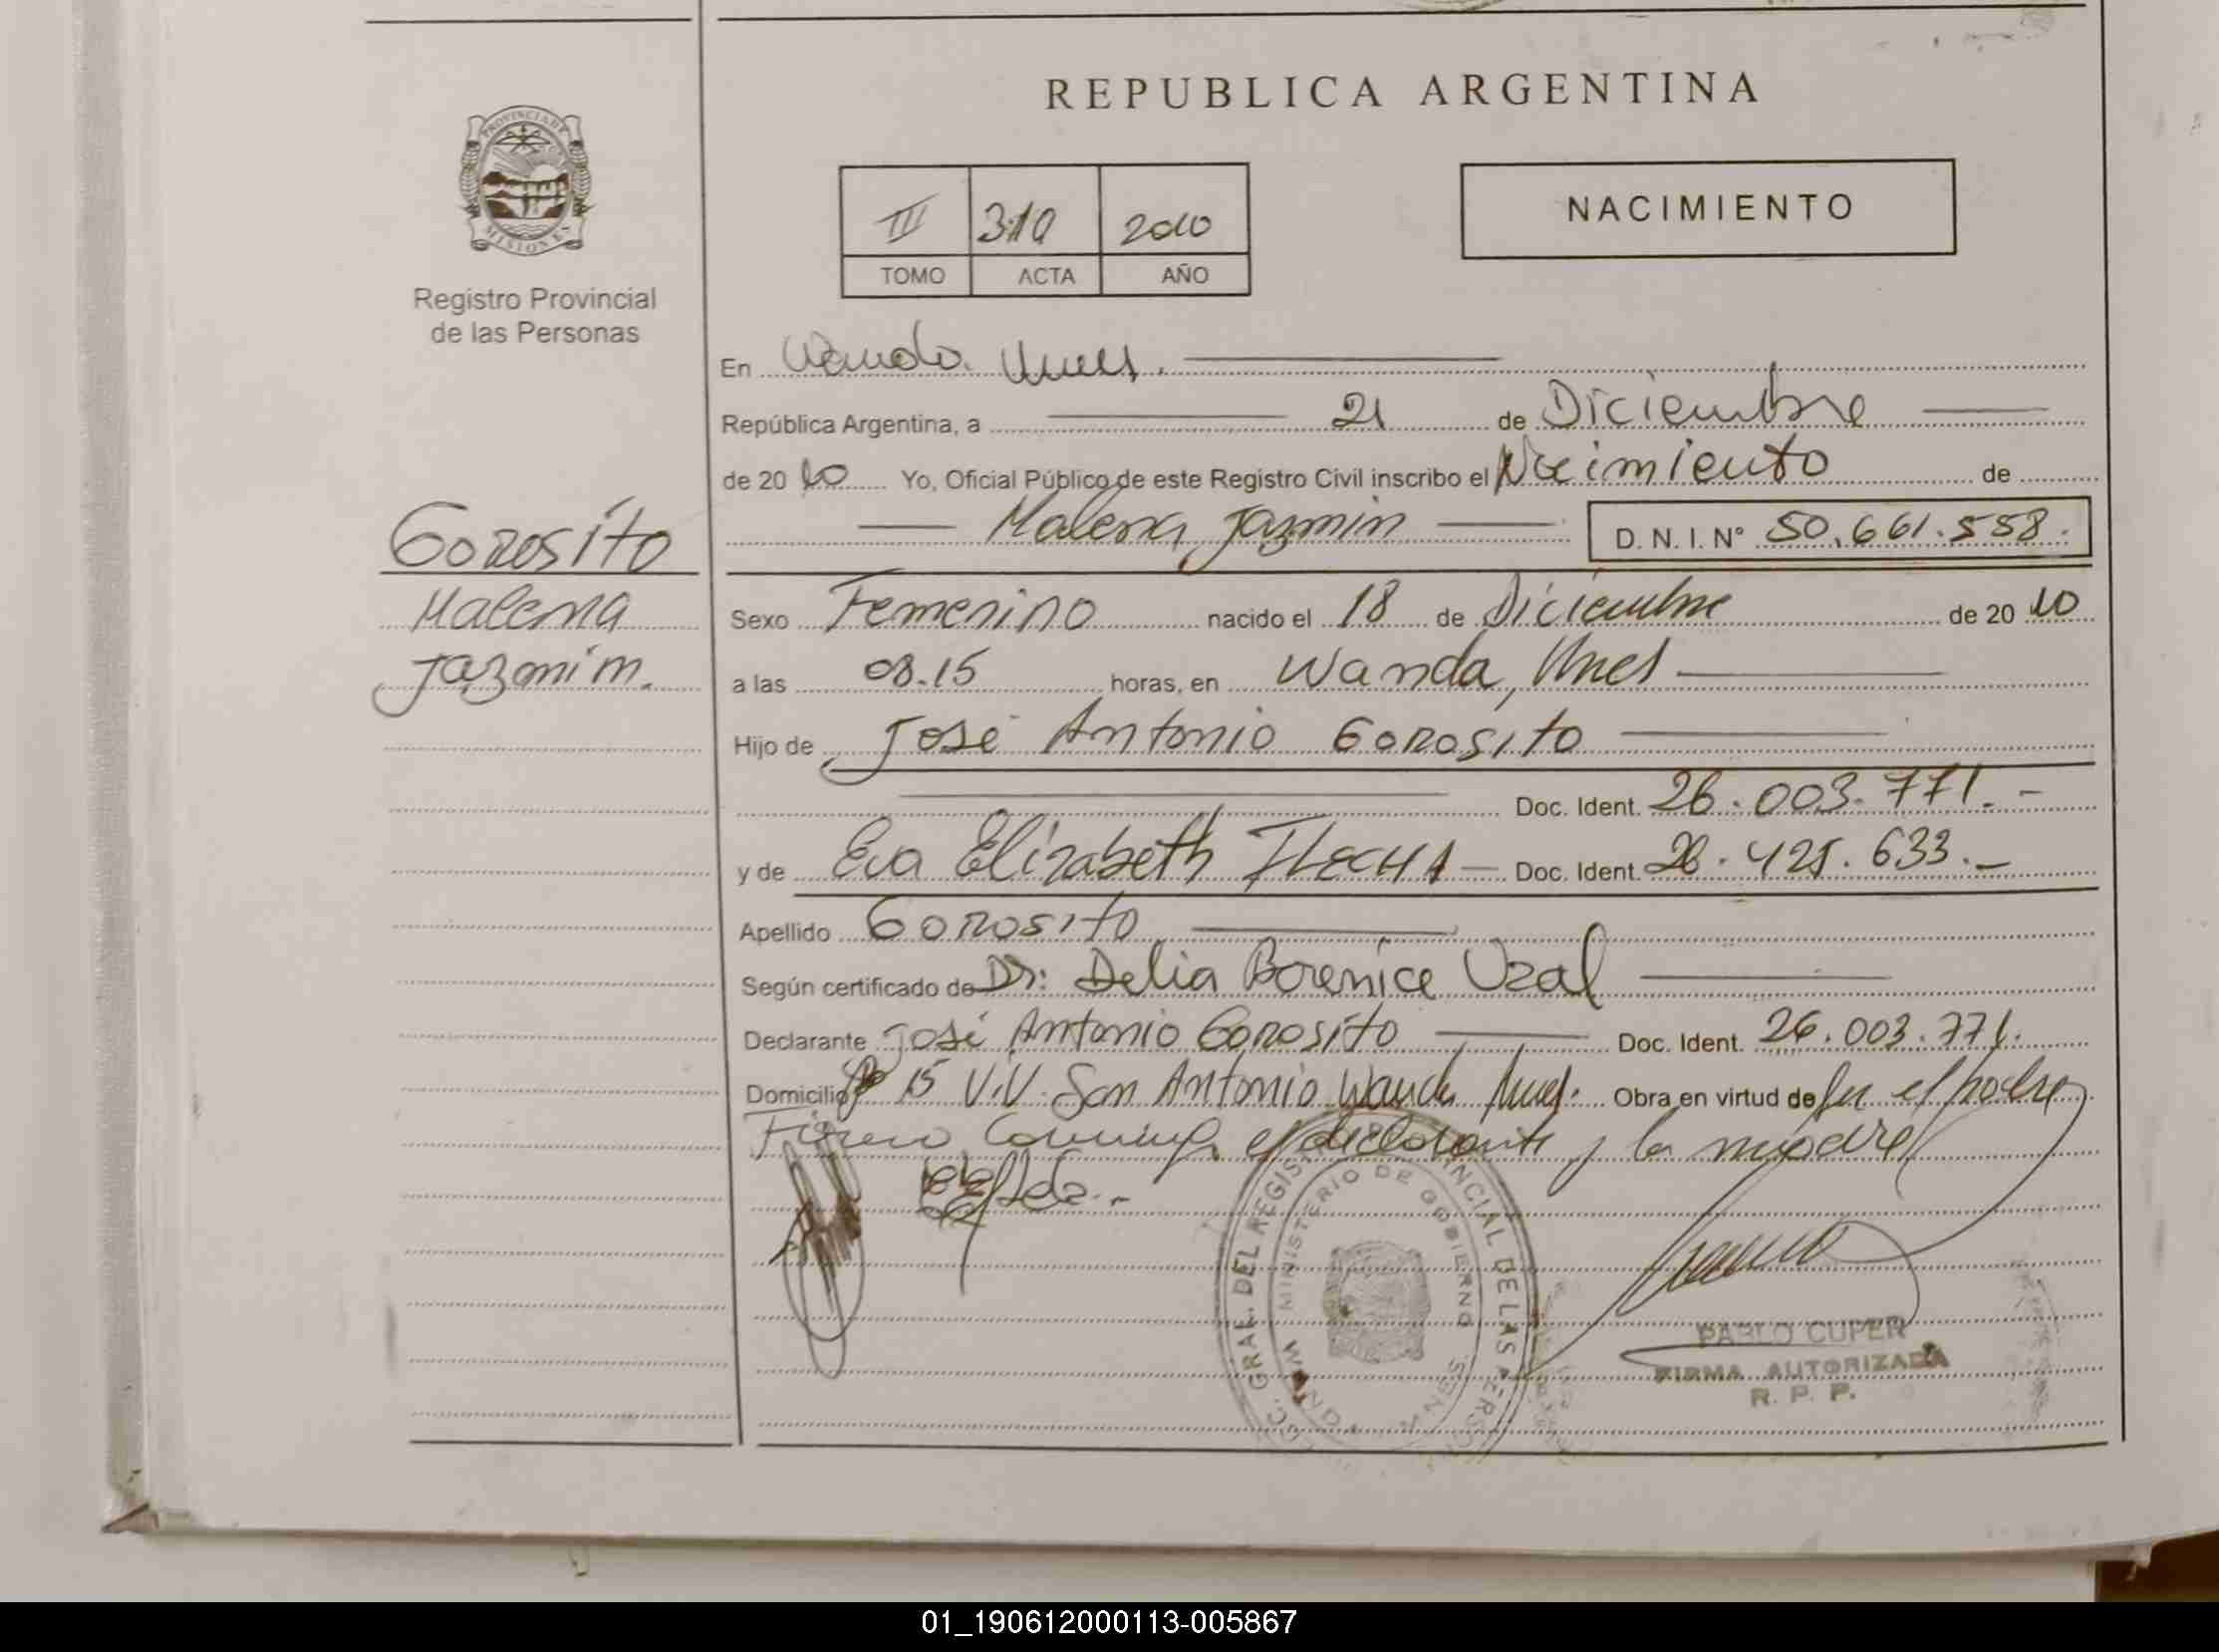 REPUBLICA ARGENTINA
PROVINCIA DE
MISIONES
Registro Provincial
de las Personas
III 310 2010
TOMO ACTA AÑO
NACIMIENTO
En Wanda. Mnes.
República Argentina, a 21 de Diciembre
de 2010 Yo, Oficial Público de este Registro Civil inscribo el Nacimiento de
Malena Jazmin D. N. I. Nº 50.661.558.
Gorosito
Malena
Jazmin.
Sexo Femenino nacido el 18 de Diciembre de 2010
a las 08.15 horas, en Wanda, Mnes
Hijo de José Antonio Gorosito
Doc. Ident. 26.003.771.-
y de Eva Elizabeth FLECHA Doc. Ident. 28.425.633.-
Apellido Gorosito
Según certificado de Dr: Delia Berenice Uzal
Declarante José Antonio Gorosito Doc. Ident. 26.003.771.
Domicilio 15 V.V. San Antonio Wanda Mnes. Obra en virtud de ser el padre
Firman Conmigo el declarante y la madre
PABLO CUPER
FIRMA AUTORIZADA
R. P. P.
MINISTERIO DE GOBIERNO
01_190612000113-005867